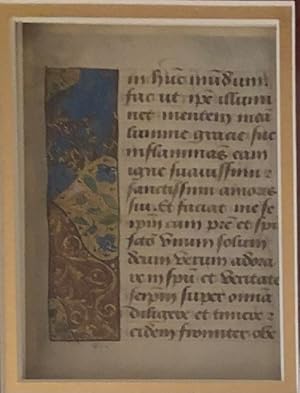 in hūc mūdum
fac ut ipē illumi
net mentem meā
lumine gracie sue
inflammās eam
igne suavissimi ⁊
sanctissimi amoris
sui. Et faciat me se
ipm̄ cum prē et spū
scō vnum solum
deum verum adora
re in spū et veritate
semp̄ super omnia
diligere et timere ⁊
eidem firmiter obe